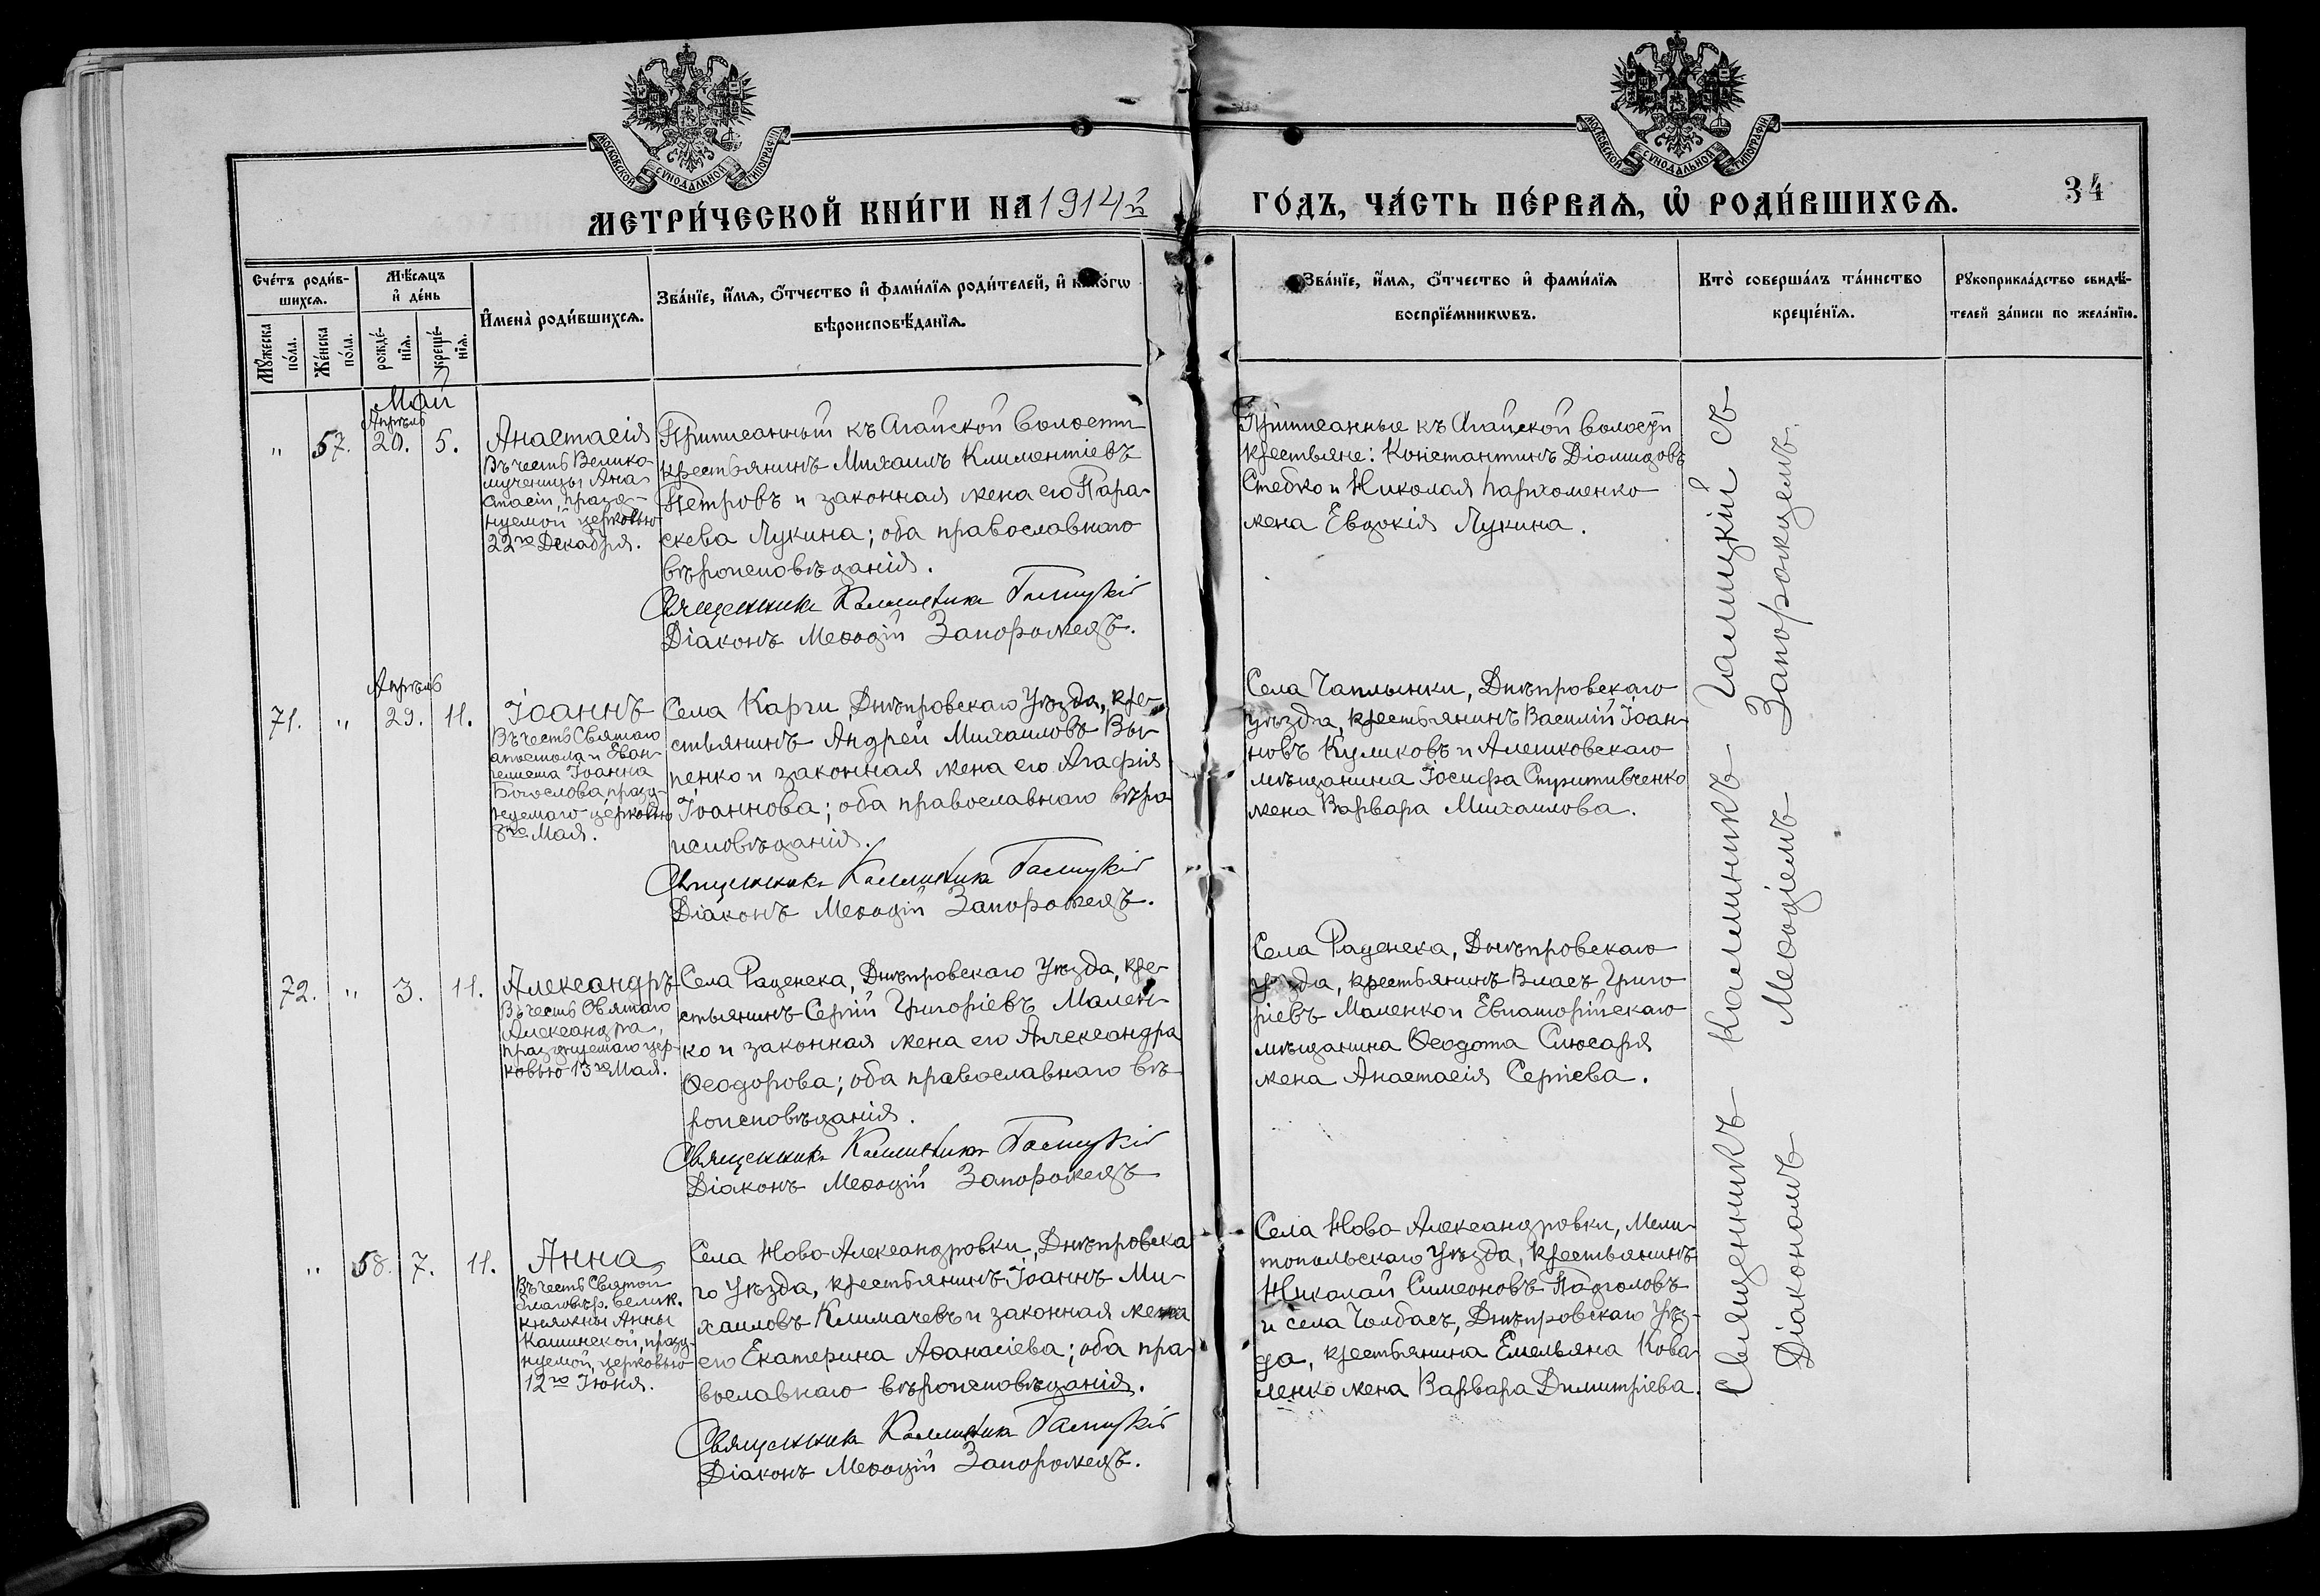 МОСКОВСКОЙ СУНОДАЛЬНОЙ ТИПОГРАФІИ
МОСКОВСКОЙ СУНОДАЛЬНОЙ ТИПОГРАФІИ
МЕТРИ́ЧЕСКОЙ КНИ́ГИ НА 1914 г.
ГО́ДЪ, ЧА́СТЬ ПЕ́РВАѦ, Ѡ РОДИ́ВШИХСѦ.
34
Сче́тъ роди́в-
шихсѧ.
Мѣ́сѧцъ
и҆ де́нь
Мꙋ́жеска
по́ла.
Же́нска
по́ла.
рожде́-
нїѧ.
креще́-
нїѧ.
И҆мена̀ роди́вшихсѧ.
Зва́нїе, и҆́мѧ, ѻ҆́тчество и҆ фами́лїѧ роди́телей, и҆ како́гѡ
вѣроисповѣ́данїѧ.
Зва́нїе, и҆́мѧ, ѻ҆́тчество и҆ фами́лїѧ
воспрїе́мникѡвъ.
Кто̀ соверша́лъ та́инство
креще́нїѧ.
Рꙋкоприкла́дство свидѣ́-
телей за́писи по жела́нїю.
Май
Апрѣль
" 57. 20. 5.
Анастасія
Въ честь Велико-
мученицы Ана-
стасіи, празд-
нуемой церковью
22го Декабря.
Приписанный къ Агайской волости
крестьянинъ Михаилъ Климентіевъ
Петровъ и законная жена его Пара-
скева Лукина; оба православнаго
вѣроисповѣданія.
Священникъ Каллиникъ Галицкій
Діаконъ Меѳодій Запорожецъ.
Приписанные къ Агайской волости
крестьяне: Константинъ Діомидовъ
Стебко и Николая Пархоменко
жена Евдокія Лукина.
Апрѣль
71. " 29. 11.
Іоаннъ
Въ честь Святаго
апостола и Еван-
гелиста Іоанна
Богослова, празд-
нуемаго церковью
8го Мая.
Села Карги, Днѣпровскаго Уѣзда, кре-
стьянинъ Андрей Михаиловъ Вы-
ренко и законная жена его Агафія
Іоаннова; оба православнаго вѣро
исповѣданія.
Священникъ Каллиникъ Галицкій
Діаконъ Меѳодій Запорожецъ.
Села Чаплынки, Днѣпровскаго
уѣзда, крестьянинъ Василій Іоан-
новъ Куликовъ и Алешковскаго
мѣщанина Іосифа
жена Варвара Михаилова.
72. " 3. 11.
Александръ
Въ честь Святаго
Александра,
празднуемаго цер-
ковью 13го Мая.
Села Раденска, Днѣпровскаго Уѣзда, кре-
стьянинъ Сергій Григоріевъ Мален-
ко и законная жена его Александра
Ѳеодорова; оба православнаго вѣ-
роисповѣданія.
Священникъ Каллиникъ Галицкій
Діаконъ Меѳодій Запорожецъ
Села Раденска, Днѣпровскаго
уѣзда, крестьянинъ Власъ Григо
ріевъ Маленко и Евпаторійскаго
мѣщанина Ѳеодота Слюсаря
жена Анастасія Сергіева.
" 58. 7. 11.
Анна
Въ честь Святой
благовѣр. велик.
княжны Анны
Кашинской, празд-
нуемой церковью
12го Іюня.
Села Ново-Александровки, Днѣпровска
го Уѣзда, крестьянинъ Іоаннъ Ми-
хаиловъ Климачевъ и законная жена
его Екатерина Аѳанасіева; оба пра-
вославнаго вѣроисповѣданія.
Священникъ Каллиникъ Галицкій
Діаконъ Меѳодій Запорожецъ.
Села Ново-Александровки, Мели-
топольскаго Уѣзда, крестьянинъ
Николай Симеоновъ Падголовъ
и села Чолбасъ, Днѣпровскаго Уѣз-
да, крестьянина Емельяна Кова-
ленко жена Варвара Димитріева.
Священникъ Каллиникъ Галицкій съ
Діакономъ Меѳодіемъ Запорожцемъ.